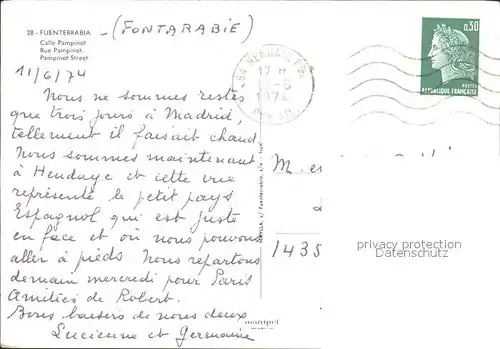 28 - FUENTERRABIA - (FONTARABIE)
Calle Pampinot
Rue Pampinot
Pampinot Street
11/6/74
Nous ne sommes restés
que trois jours à Madrid,
tellement il faisait chaud
Nous sommes maintenant
à Hendaye et cette vue
représente le petit pays
Espagnol qui est juste
en face et où nous pouvons
aller à pieds. Nous repartons
demain mercredi pour Paris
Amitiés de Robert.
Bons baisers de nous deux
Lucienne et Germaine
64 HENDAYE
17 H
1974
0,30
POSTES
REPUBLIQUE FRANÇAISE
M. e
1435
privacy protection
Datenschutz
manipel